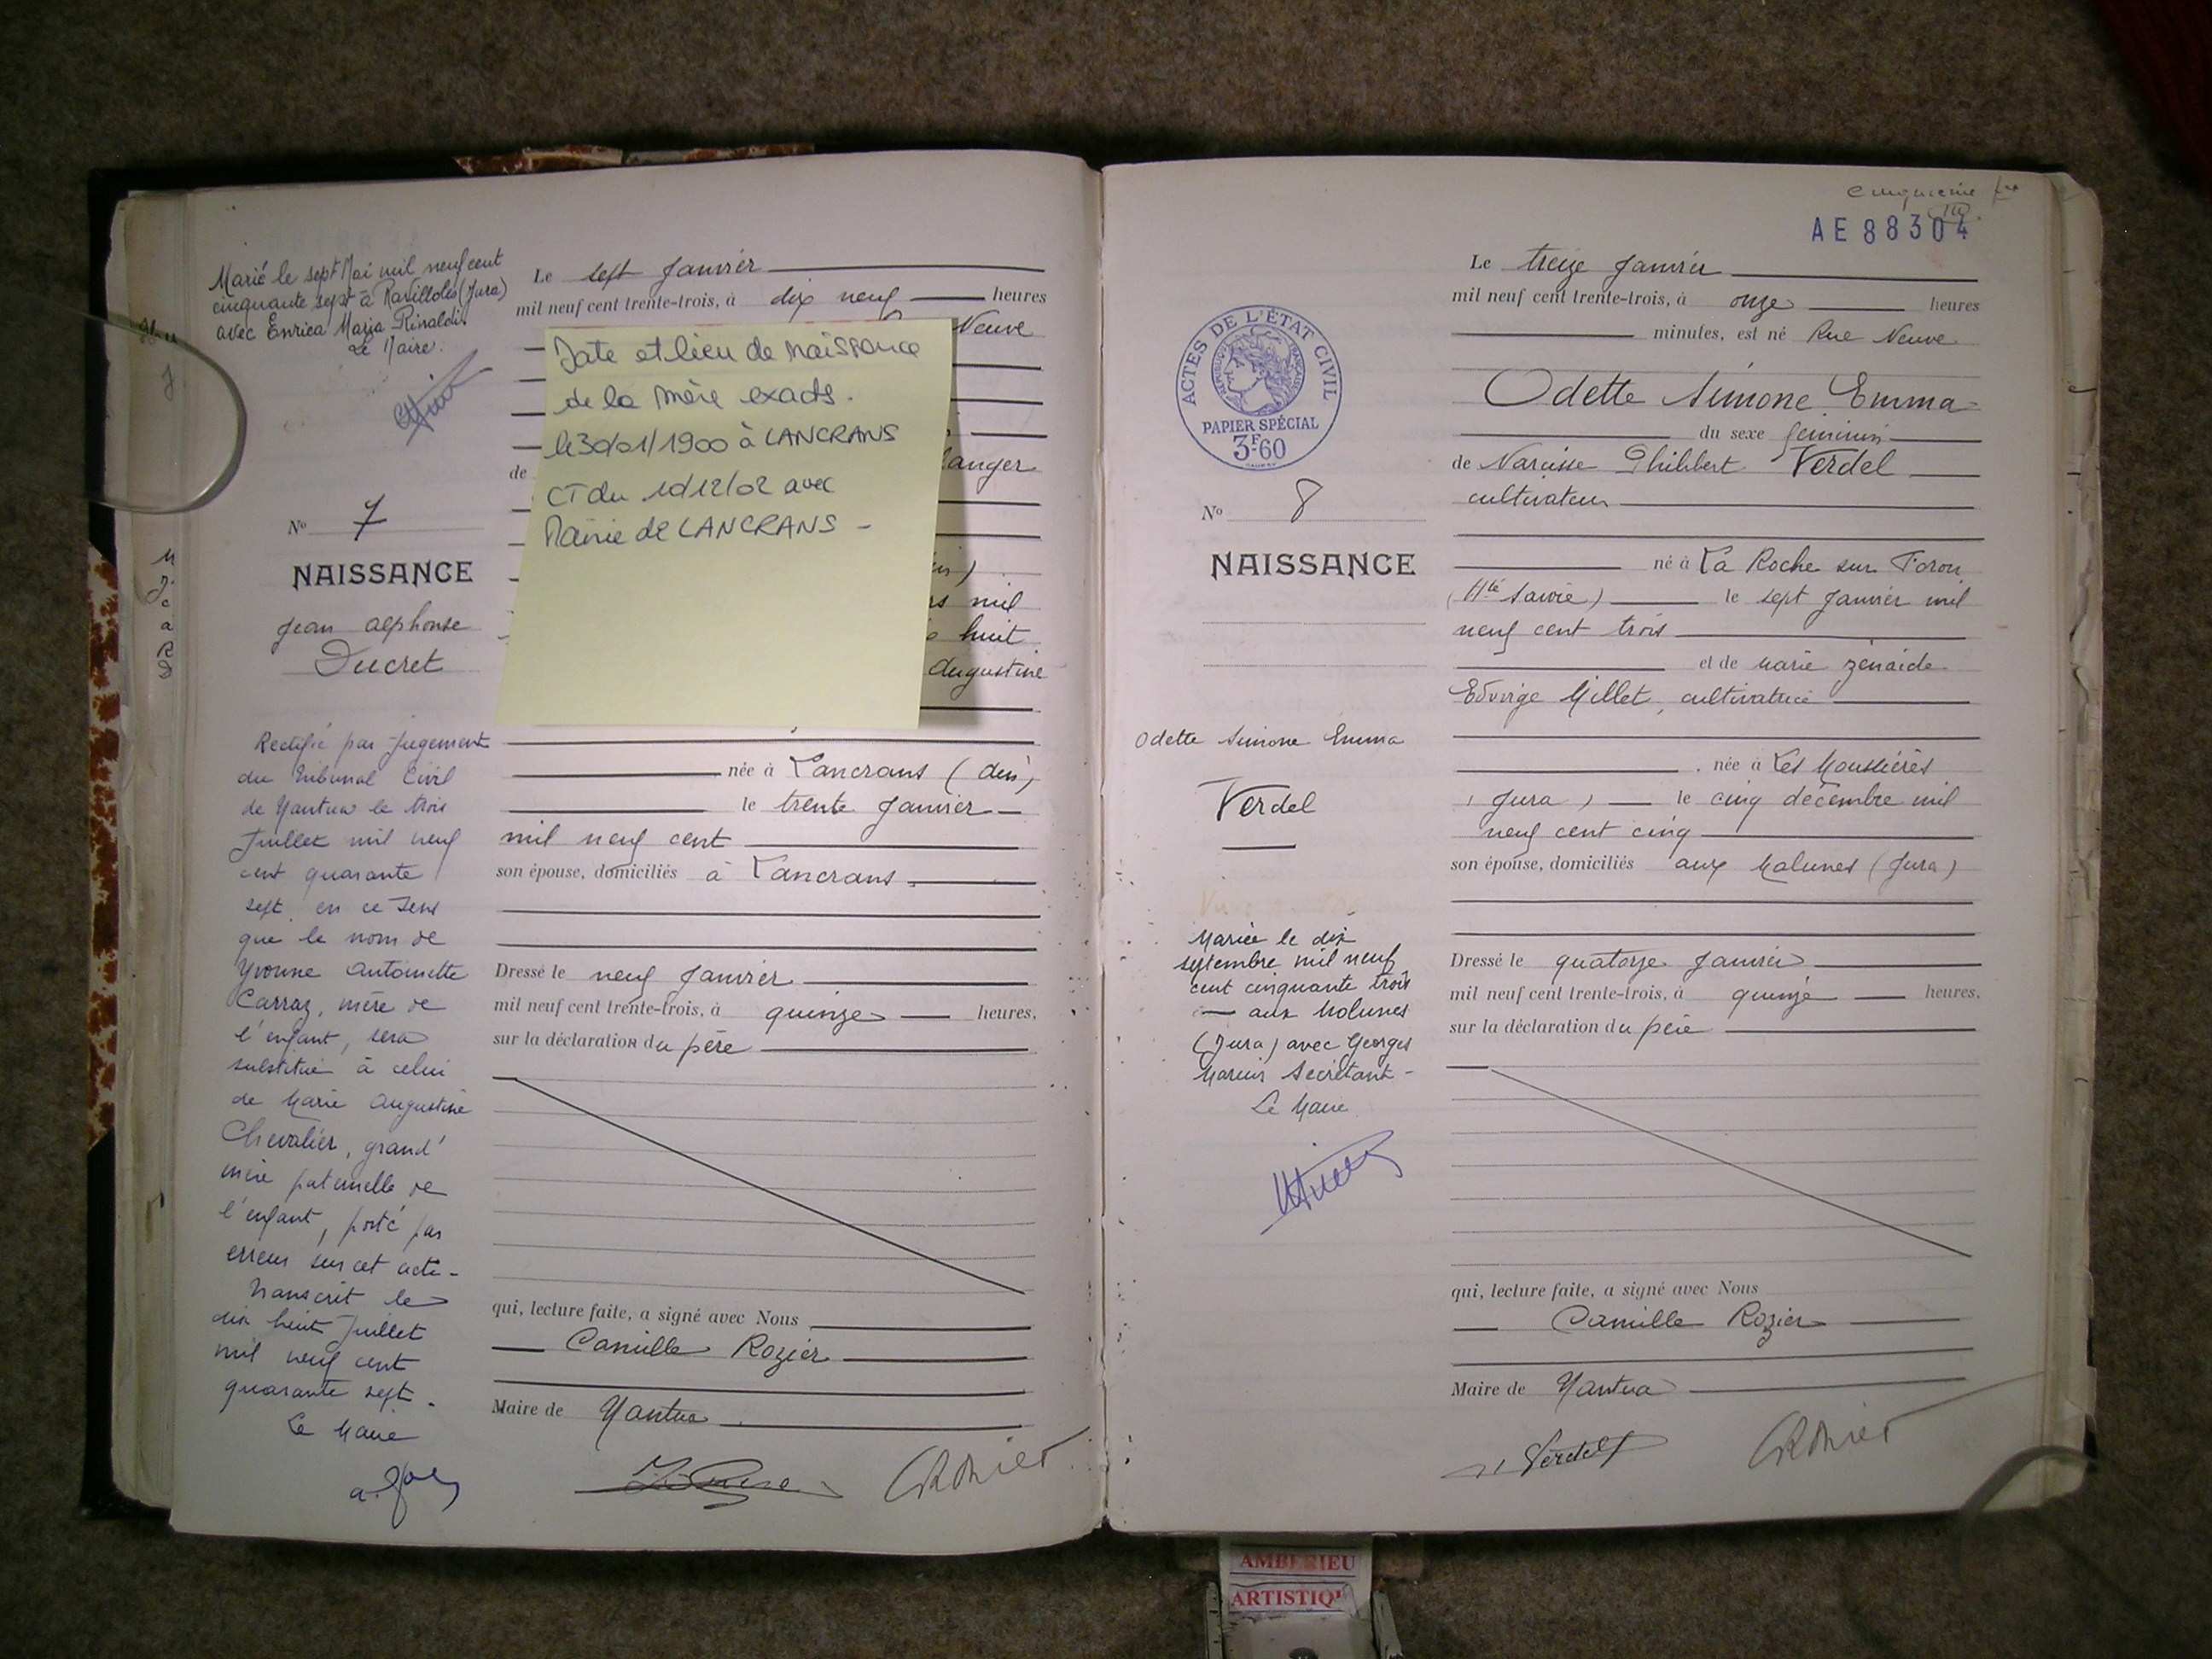 Marié le sept Mai mil neuf cent
cinquante sept à Ravilloles (Jura)
avec Enrica Maria Rinaldi.
Le Maire.
No 7
NAISSANCE
Jean Alphonse
Ducret
Rectifié par Jugement
du Tribunal Civil
de Nantua le trois
Juillet mil neuf
cent quarante
sept, en ce sens
que le nom de
Yvonne Antoinette
Carraz, mère de
l'enfant, sera
substitué à celui
de Marie Augustine
Chevalier, grand'
mère paternelle de
l'enfant, porté par
erreur sur cet acte -
Transcrit le
dix huit Juillet
mil neuf cent
quarante sept.
Le Maire
Le sept Janvier
mil neuf cent trente-trois, à dix neuf heures
Neuve
Date et lieu de naissance
de la mère exacts.
le 30/01/1900 à LANCRANS
CT du 10/12/02 avec
Mairie de LANCRANS -
de
langer
mil
huit
Augustine
née à Lancrans (Ain)
le trente Janvier
mil neuf cent
son épouse, domiciliés à Lancrans.
Dressé le neuf Janvier
mil neuf cent trente-trois, à quinze heures,
sur la déclaration du père
qui, lecture faite, a signé avec Nous
Camille Rozier
Maire de Nantua
CRozier
cinquième
AE 88304
ACTES DE L'ÉTAT CIVIL
RÉPUBLIQUE FRANÇAISE
PAPIER SPÉCIAL
3F60
No 8
NAISSANCE
Odette Simone Emma
Verdel
Mariée le dix
septembre mil neuf
cent cinquante trois
aux Molunes
(Jura) avec Georges
Marius Secrétant -
Le Maire
Le treize Janvier
mil neuf cent trente-trois, à onze heures
minutes, est né Rue Neuve
Odette Simone Emma
du sexe féminin
de Narcisse Philibert Verdel
cultivateur
né à La Roche sur Foron
(Hte Savoie) le sept Janvier mil
neuf cent trois
et de Marie Zénaïde
Edwige Millet, cultivatrice
née à Les Moussières
(Jura) le cinq décembre mil
neuf cent cinq
son épouse, domiciliés aux Molunes (Jura)
Dressé le quatorze Janvier
mil neuf cent trente-trois, à quinze heures,
sur la déclaration du père
qui, lecture faite, a signé avec Nous
Camille Rozier
Maire de Nantua
Verdel
CRozier
AMBERIEU
ARTISTIQ